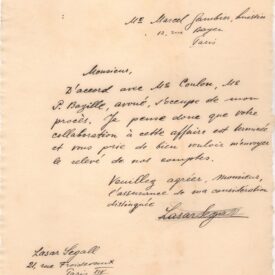 Me Marcel Gambier, huissier
12, rue Boyer
Paris
Monsieur,
D'accord avec Me Coulon, Me
P. Bazille, avoué, s'occupe de mon
procès. Je pense donc que votre
collaboration à cette affaire est terminée
et vous prie de bien vouloir m'envoyer
le relevé de nos comptes.
Veuillez agréer, Monsieur,
l'assurance de ma considération
distinguée
Lasar Segall
Lasar Segall
21, rue Froidevaux
Paris